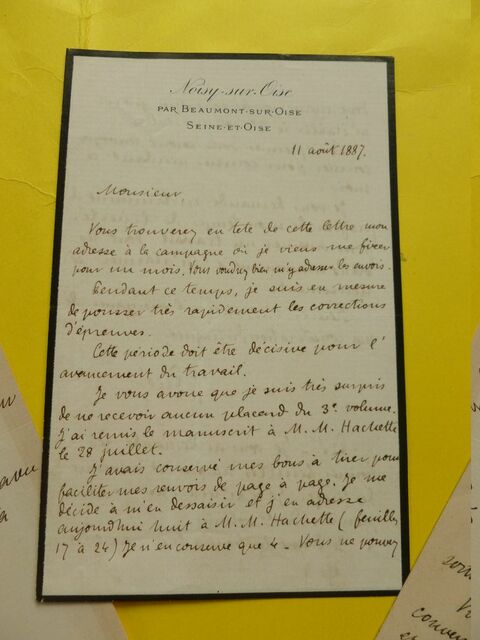 Noisy-sur-Oise
PAR BEAUMONT-SUR-OISE
SEINE-ET-OISE
11 août 1887.
Monsieur
Vous trouverez en tete de cette lettre mon
adresse à la campagne où je viens me fixer
pour un mois. Vous voudrez bien m'y adresser les envois.
Pendant ce temps, je suis en mesure
de pousser très rapidement les corrections
d'épreuves.
Cette période doit être décisive pour l'
avancement du travail.
Je vous avoue que je suis très surpris
de ne recevoir aucun placard du 3e volume.
J'ai remis le manuscrit à M.M. Hachette
le 28 juillet.
J'avais conservé mes bons à tirer pour
faciliter mes renvois de page à page. Je me
décide à m'en dessaisir et j'en adresse
aujourd'hui huit à M.M. Hachette (feuilles
17 à 24) Je n'en conserve que 4 - Vous ne pouvez